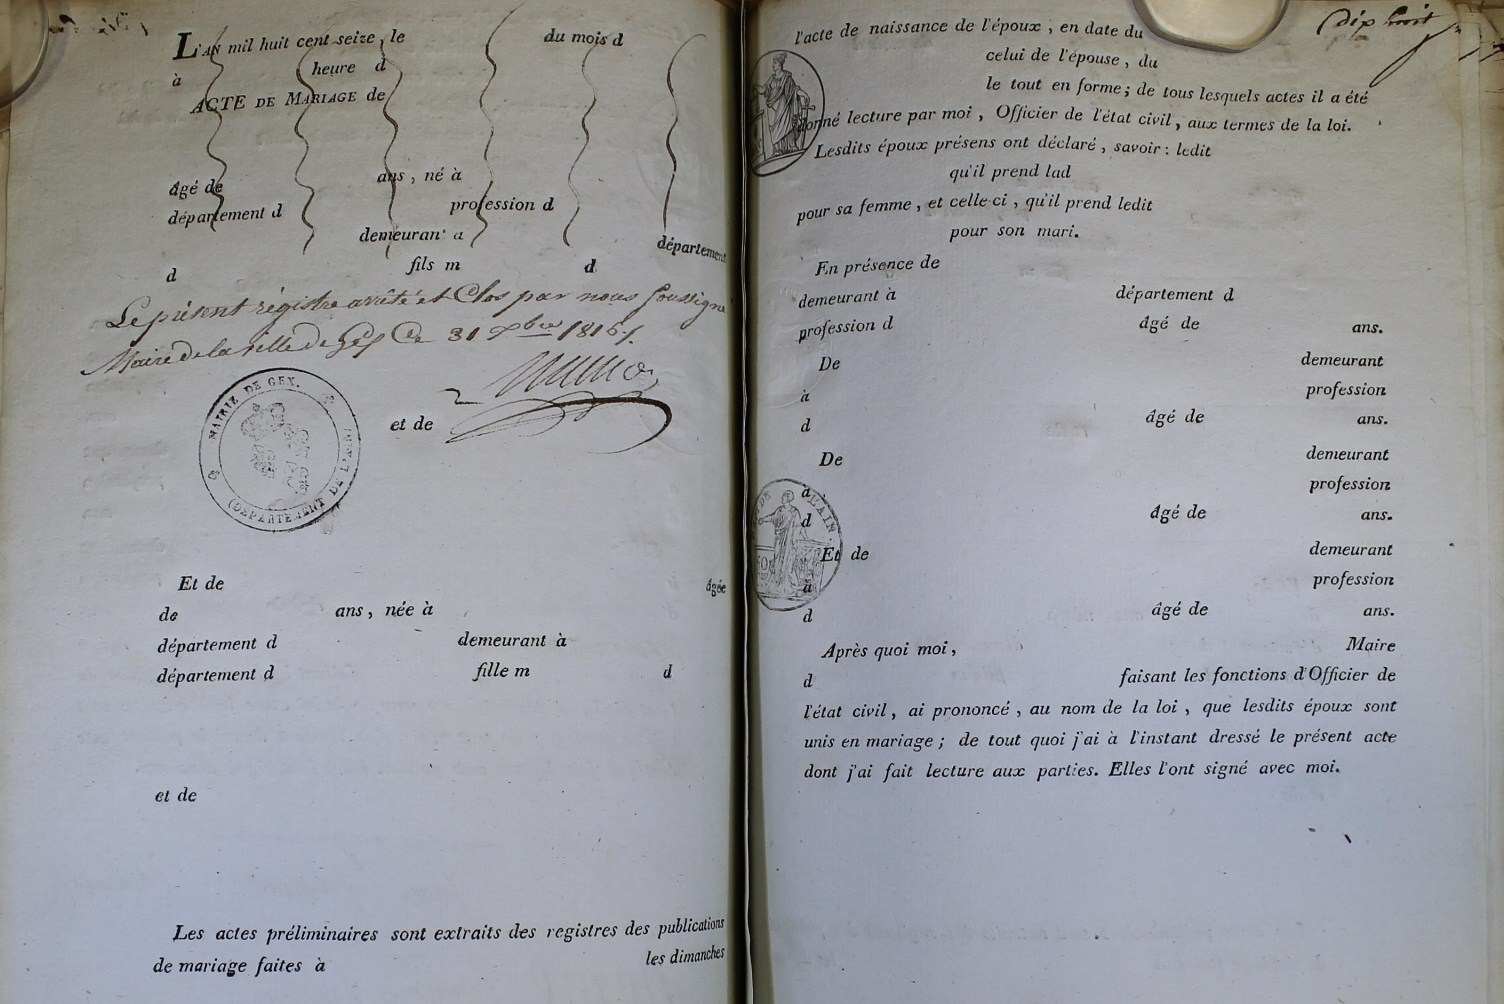 L'AN mil huit cent seize, le du mois d
à heure d
ACTE DE MARIAGE de
âgé de ans, né à
département d profession d
demeurant a département
d fils m d
Le présent régistre arrêté et Clos par nous soussigné
Maire de la ville de Gex Ce 31 Xbre 1816
MAIRIE DE GEX.
(DÉPARTEMENT DE L'AIN)
et de
Et de âgée
de ans, née à
département d demeurant à
département d fille m d
et de
Les actes préliminaires sont extraits des registres des publications
de mariage faites à les dimanches
dix huit
l'acte de naissance de l'époux, en date du
celui de l'épouse, du
le tout en forme; de tous lesquels actes il a été
donné lecture par moi, Officier de l'état civil, aux termes de la loi.
Lesdits époux présens ont déclaré, savoir: ledit
qu'il prend lad
pour sa femme, et celle-ci, qu'il prend ledit
pour son mari.
En présence de
demeurant à département d
profession d âgé de ans.
De demeurant
à profession
d âgé de ans.
De demeurant
à profession
d âgé de ans.
Et de demeurant
à profession
d âgé de ans.
AIN
Après quoi moi, Maire
d faisant les fonctions d'Officier de
l'état civil, ai prononcé, au nom de la loi, que lesdits époux sont
unis en mariage; de tout quoi j'ai à l'instant dressé le présent acte
dont j'ai fait lecture aux parties. Elles l'ont signé avec moi.